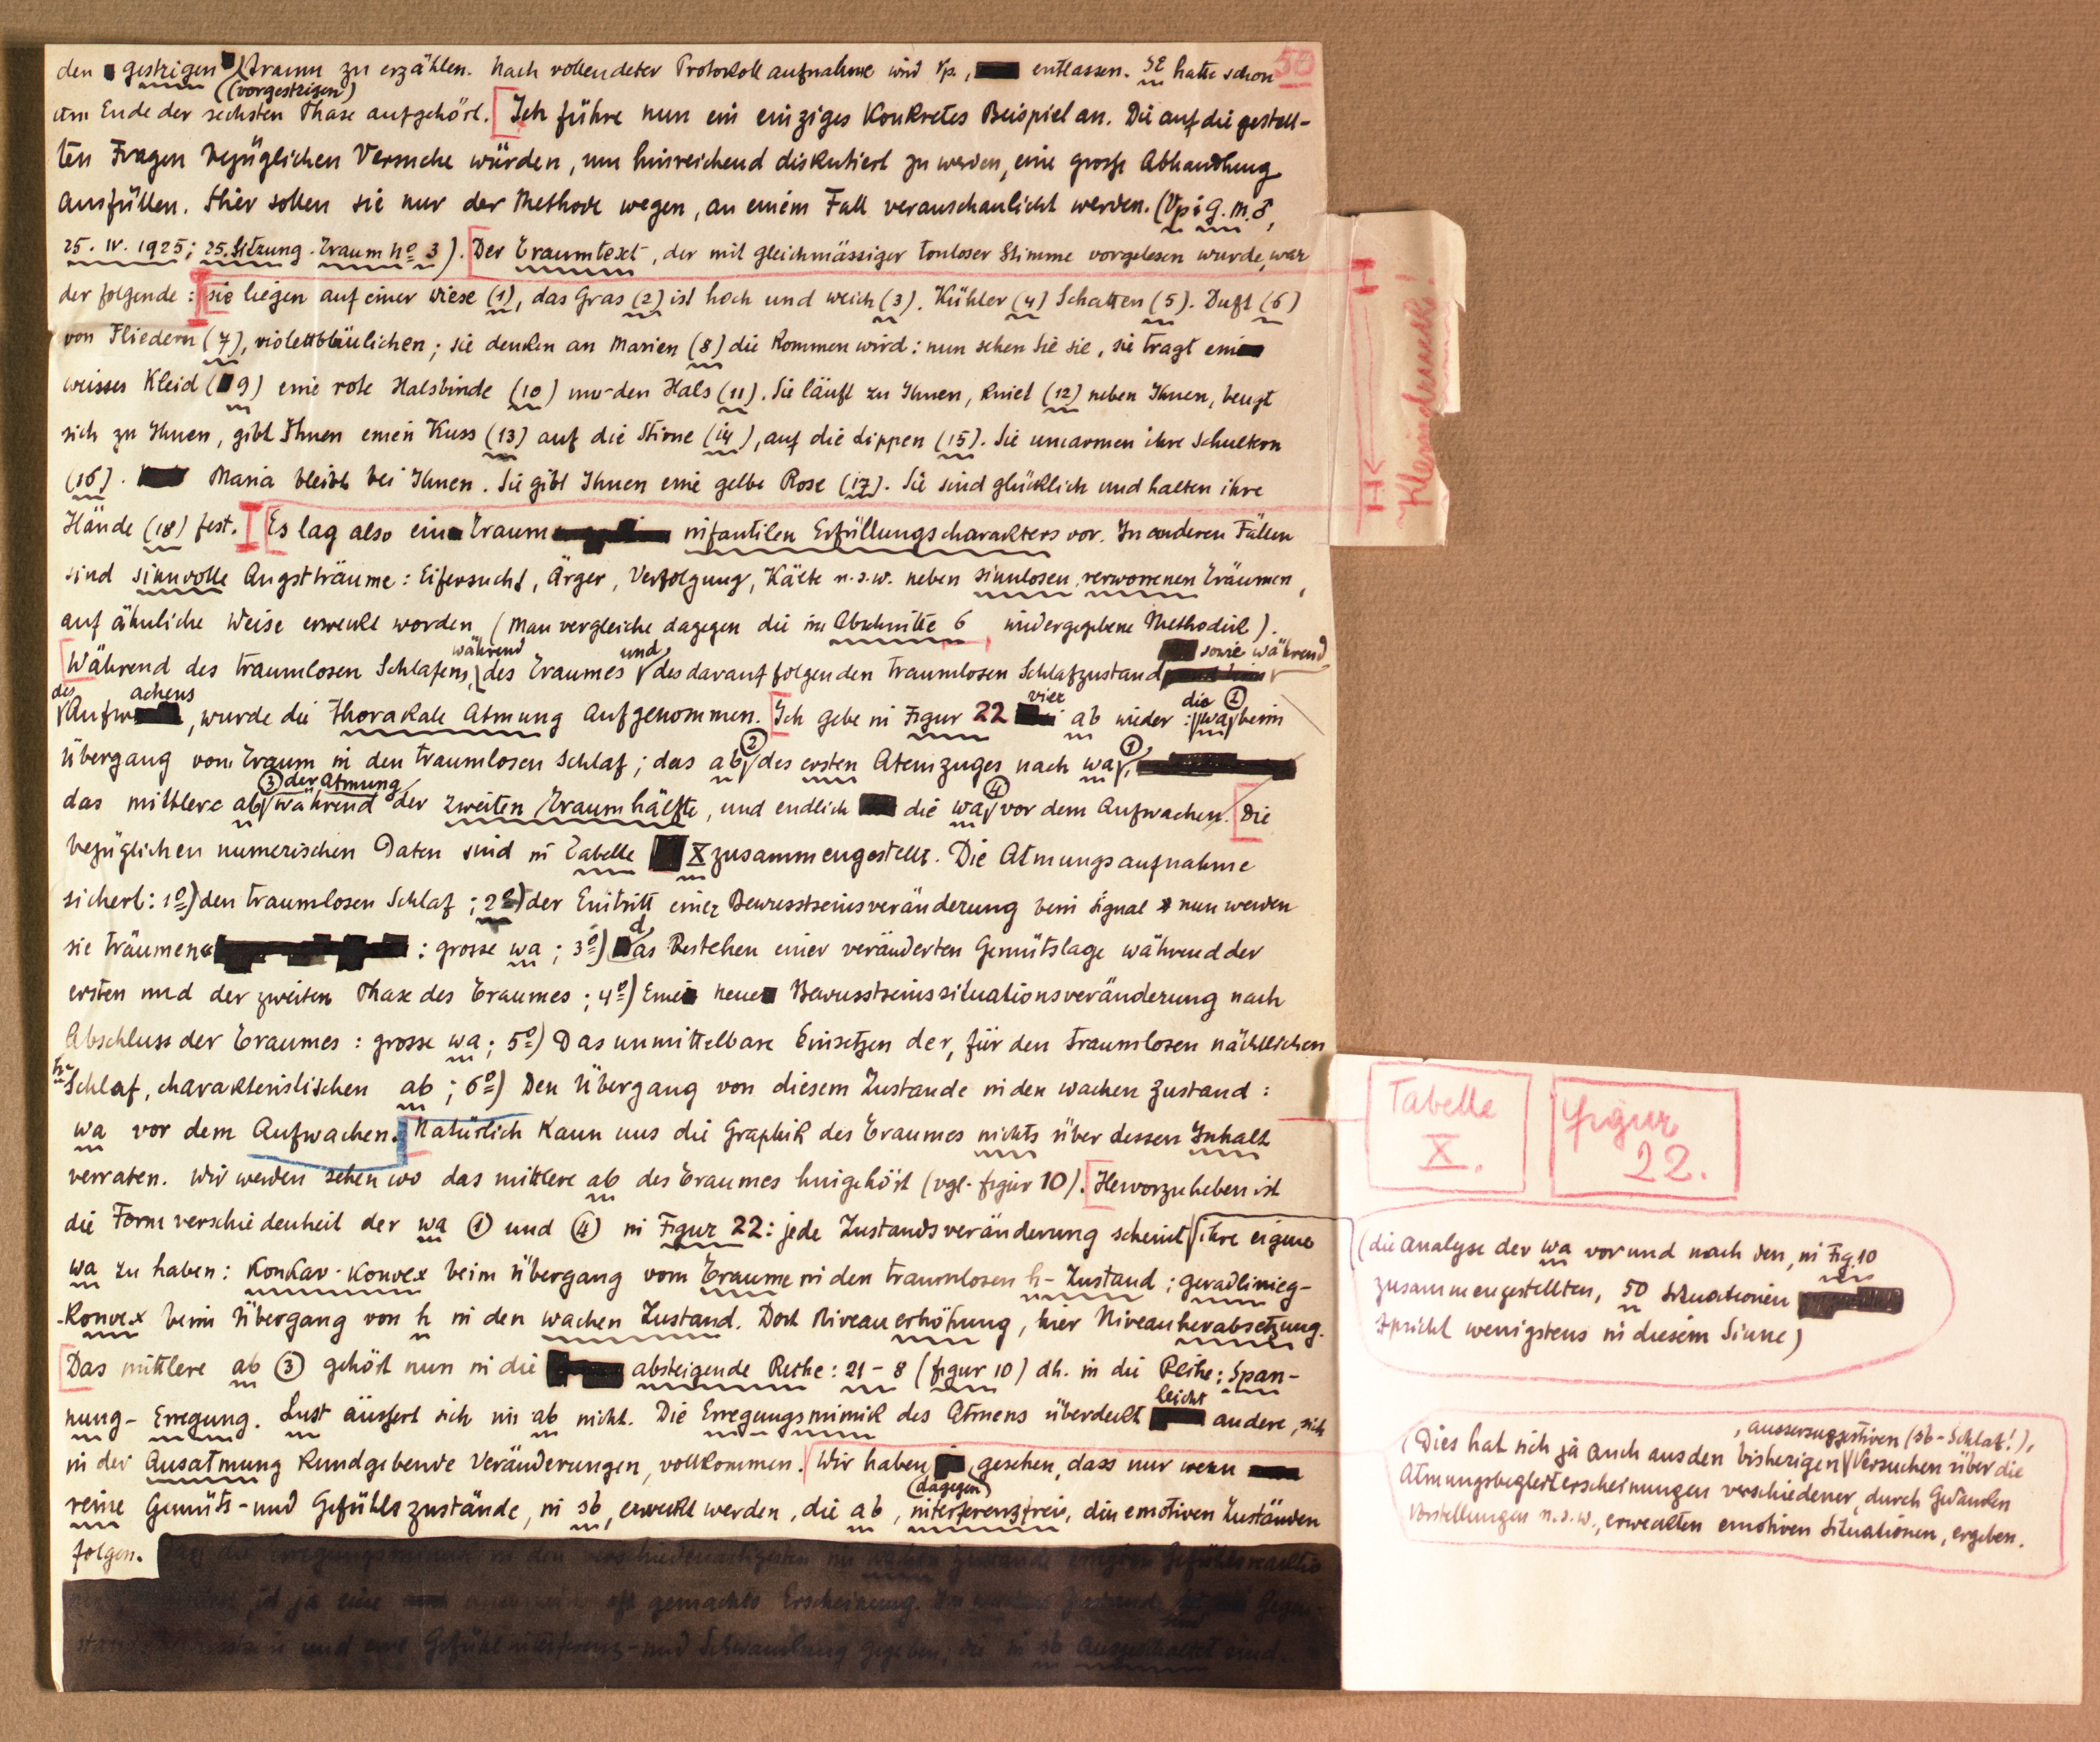 50
den gestrigen Traum zu erzählen. Nach vollendeter Protokollaufnahme wird Vp. entlassen. SE hatte schon
(vorgestrigen)
am Ende der sechsten Phase aufgehört. Ich führe nun ein einziges konkretes Beispiel an. Die auf die gestell-
ten Fragen bezüglichen Versuche würden, um hinreichend diskutiert zu werden, eine grosse Abhandlung
ausfüllen. Hier sollen sie nur der Methode wegen, an einem Fall veranschaulicht werden. (Vp: G. M. ♂,
25. IV. 1925; 25. Sitzung. Traum No 3). Der Traumtext, der mit gleichmässiger tonloser Stimme vorgelesen wurde, war
der folgende: sie liegen auf einer Wiese (1), das Gras (2) ist hoch und weich (3). Kühler (4) Schatten (5). Duft (6)
von Fliedern (7), violettbläulichen; sie denken an Marien (8) die kommen wird: nun sehen Sie sie, sie trägt ein
weisses Kleid (9) eine rote Halsbinde (10) um den Hals (11). Sie läuft zu Ihnen, kniet (12) neben Ihnen, beugt
sich zu Ihnen, gibt Ihnen einen Kuss (13) auf die Stirne (14), auf die Lippen (15). Sie umarmen ihre Schultern
(16). Maria bleibt bei Ihnen. Sie gibt Ihnen eine gelbe Rose (17). Sie sind glücklich und halten ihre
Hände (18) fest. Es lag also ein Traum infantilen Erfüllungscharakters vor. In anderen Fällen
sind sinnvolle Angstträume: Eifersucht, Ärger, Verfolgung, Kälte u.s.w. neben sinnlosen, verworrenen Träumen,
auf ähnliche Weise erweckt worden (man vergleiche dagegen die im Abschnitte 6 widergegebene Methodik).
während und sowie während
Während des traumlosen Schlafens, des Traumes des darauf folgenden traumlosen Schlafzustand
des achens vier die ①
Aufw , wurde die thorakale Atmung aufgenommen. Ich gebe in Figur 22 ab wieder: wa beim
Übergang vom Traum in den traumlosen Schlaf; das ab ② des ersten Atemzuges nach wa ①,
③ der Atmung
das mittlere ab während der zweiten Traumhälfte, und endlich die wa ④ vor dem Aufwachen. Die
bezüglichen numerischen Daten sind in Tabelle X zusammengestellt. Die Atmungsaufnahme
sichert: 1º) den traumlosen Schlaf; 2º) der Eintritt einer Bewusstseinsveränderung beim Signal » nun werden
sie träumen« : grosse wa; 3º) das Bestehen einer veränderten Gemütslage während der
ersten und der zweiten Phase des Traumes; 4º) Eine neue Bewusstseinssituationsveränderung nach
Abschluss der Traumes: grosse wa; 5º) Das unmittelbare Einsetzen der, für den traumlosen nächtlichen
Schlaf, charakteristischen ab; 6º) Den Übergang von diesem Zustande in den wachen Zustand:
wa vor dem Aufwachen. Natürlich kann uns die Graphik des Traumes nichts über dessen Inhalt
verraten. Wir werden sehen wo das mittlere ab des Traumes hingehört (vgl. figur 10). Hervorzuheben ist
die Formverschiedenheit der wa ① und ④ in Figur 22: jede Zustandsveränderung scheint ihre eigene
wa zu haben: konkav-konvex beim Übergang vom Traume in den traumlosen h-Zustand; geradlinieg-
-konvex beim Übergang von h in den wachen Zustand. Dort Niveauerhöhung, hier Niveauherabsetzung.
Das mittlere ab ③ gehört nun in die absteigende Reihe: 21-8 (figur 10) dh. in die Reihe: Span-
leicht
nung- Erregung. Lust äussert sich im ab nicht. Die Erregungsmimik des Atmens überdeckt andere, sich
in der Ausatmung kundgebende Veränderungen, vollkommen. Wir haben gesehen, dass nur wenn
(dagegen)
reine Gemüts- und Gefühlszustände, in sb, erweckt werden, die ab, interferenzfrei, den emotiven Zuständen
folgen.
Kleindruck!
Tabelle
X.
figur
22.
(die Analyse der wa vor und nach den, in Fig. 10
zusammengestellten, 50 Situationen
spricht wenigstens in diesem Sinne)
, aussersuggestiven (sb-Schlaf!),
(Dies hat sich ja auch aus den bisherigen Versuchen über die
Atmungsbegleiterscheinungen verschiedener, durch Gedanken
Vorstellungen u.s.w., erweckten emotiven Situationen, ergeben.